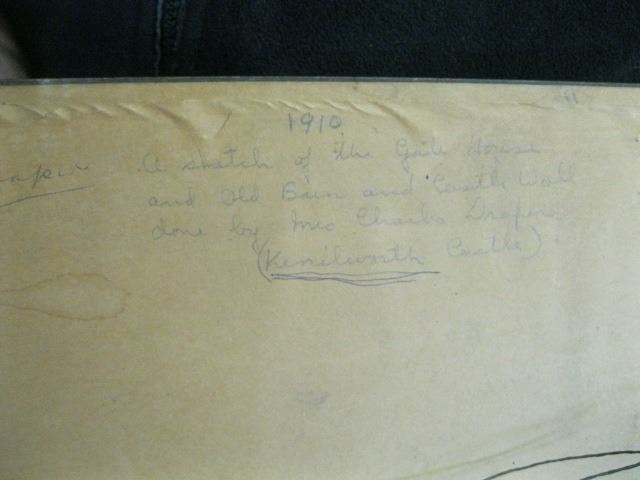 1910
A sketch of the Gate House
and Old Barn and Castle Wall
done by Mrs Charles Draper
(Kenilworth Castle)